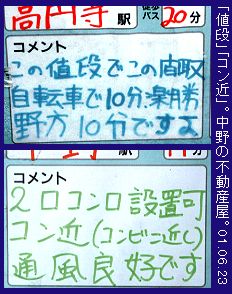 高円寺駅 徒歩 バス 20分
コメント
この値段でこの間取
自転車で10分.楽勝
野方10分ですよ
駅 分
コメント
2口コンロ設置可
コン近(コンビニ近し)
通風良好です
「値段」「コン近」。中野の不動産屋。01.06.23